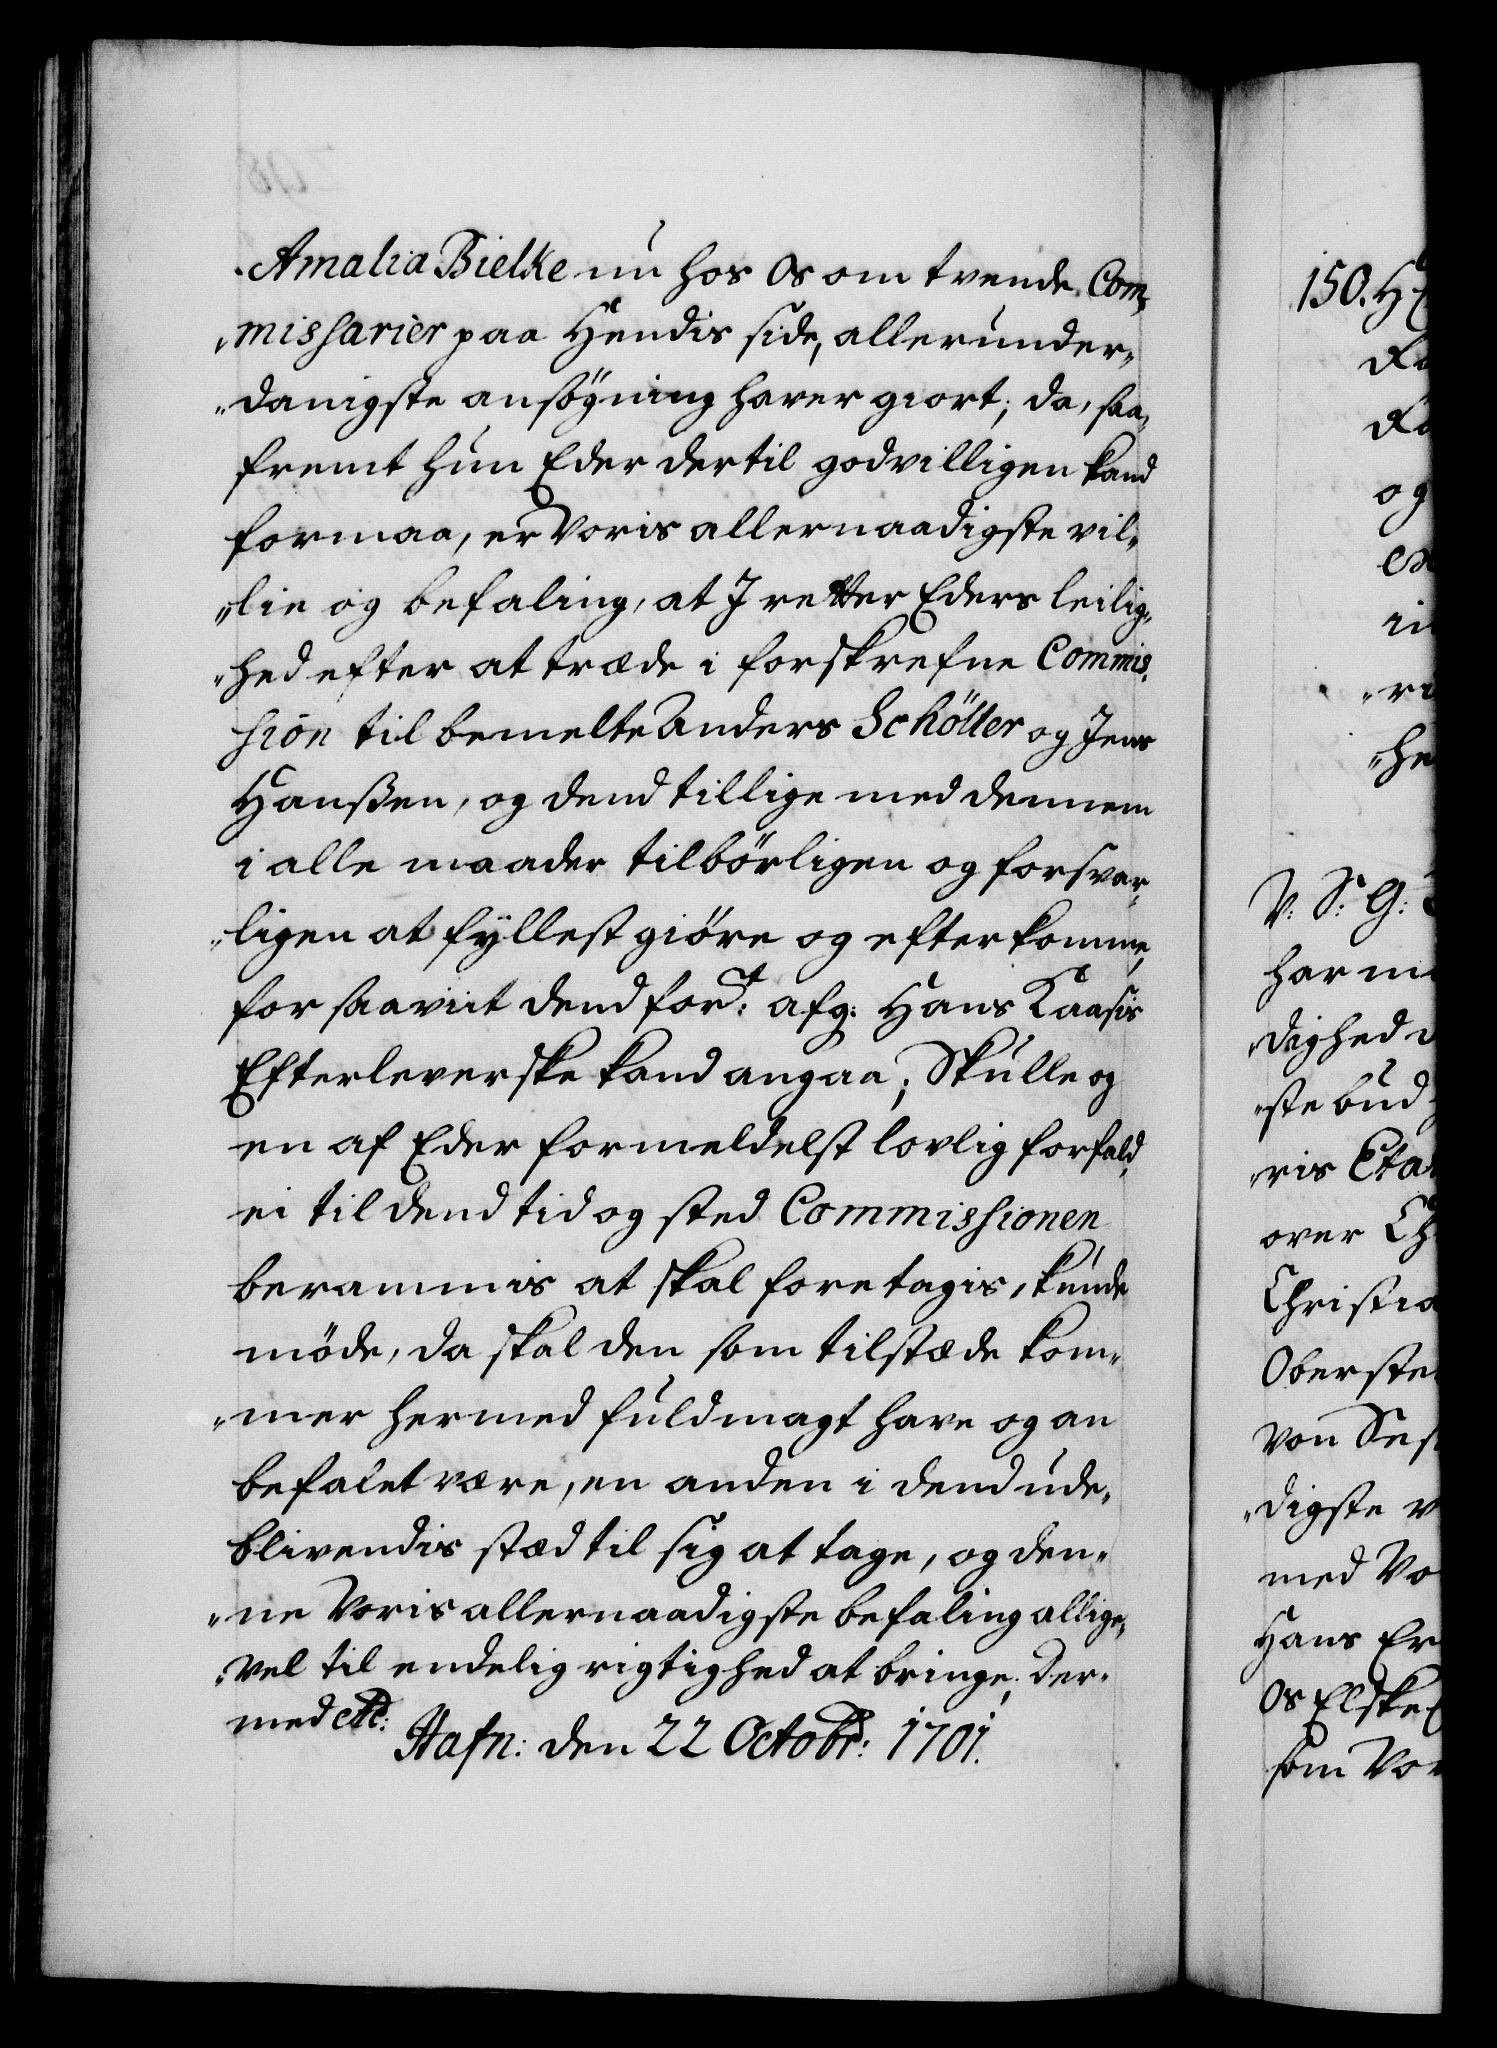 Amalia Bielke nu hos Os om tvende Com„
„missarier paa Hendis side, allerunder„
„danigste ansøgning haver giort; da, saa„
fremt hun Eder dertil godvilligen kand
formaa, er Voris allernaadigste vil„
„lie og befaling, at I retter Eders leilig„
„hed efter at træde i forskrefne Commis„
sion til bemelte Anders Schöller og Jens
Hanßen, og dend tillige med dennem
i alle maader tilbørligen og forsvar„
„ligen at fyllest giøre og efterkomme,
for saavit dend fort: afg: Hans Kaasis
Efterleverske kand angaa; Skulle og
en af Eder formedelst lovlig forfald,
ei til dend tid og sted Commissionen
berammis at skal foretagis, kunde
møde, da skal den som tilstæde kom„
„mer hermed fuldmagt have og an
befalet være, en anden i dend ude„
blivendis stæd til sig at tage, og den„
„ne Voris allernaadigste befaling allige„
„vel til endelig rigtighed at bringe. Der„
med etc:
Hafn: den 22 Octobr: 1701.
150.
og
„he
V: S: G:
har
„dighed
„ste bud
„ris Eta
over Ch
Christia
Oberste
von Seh
„digste v
med Vo
Hans Er
Os Elske
som Vor